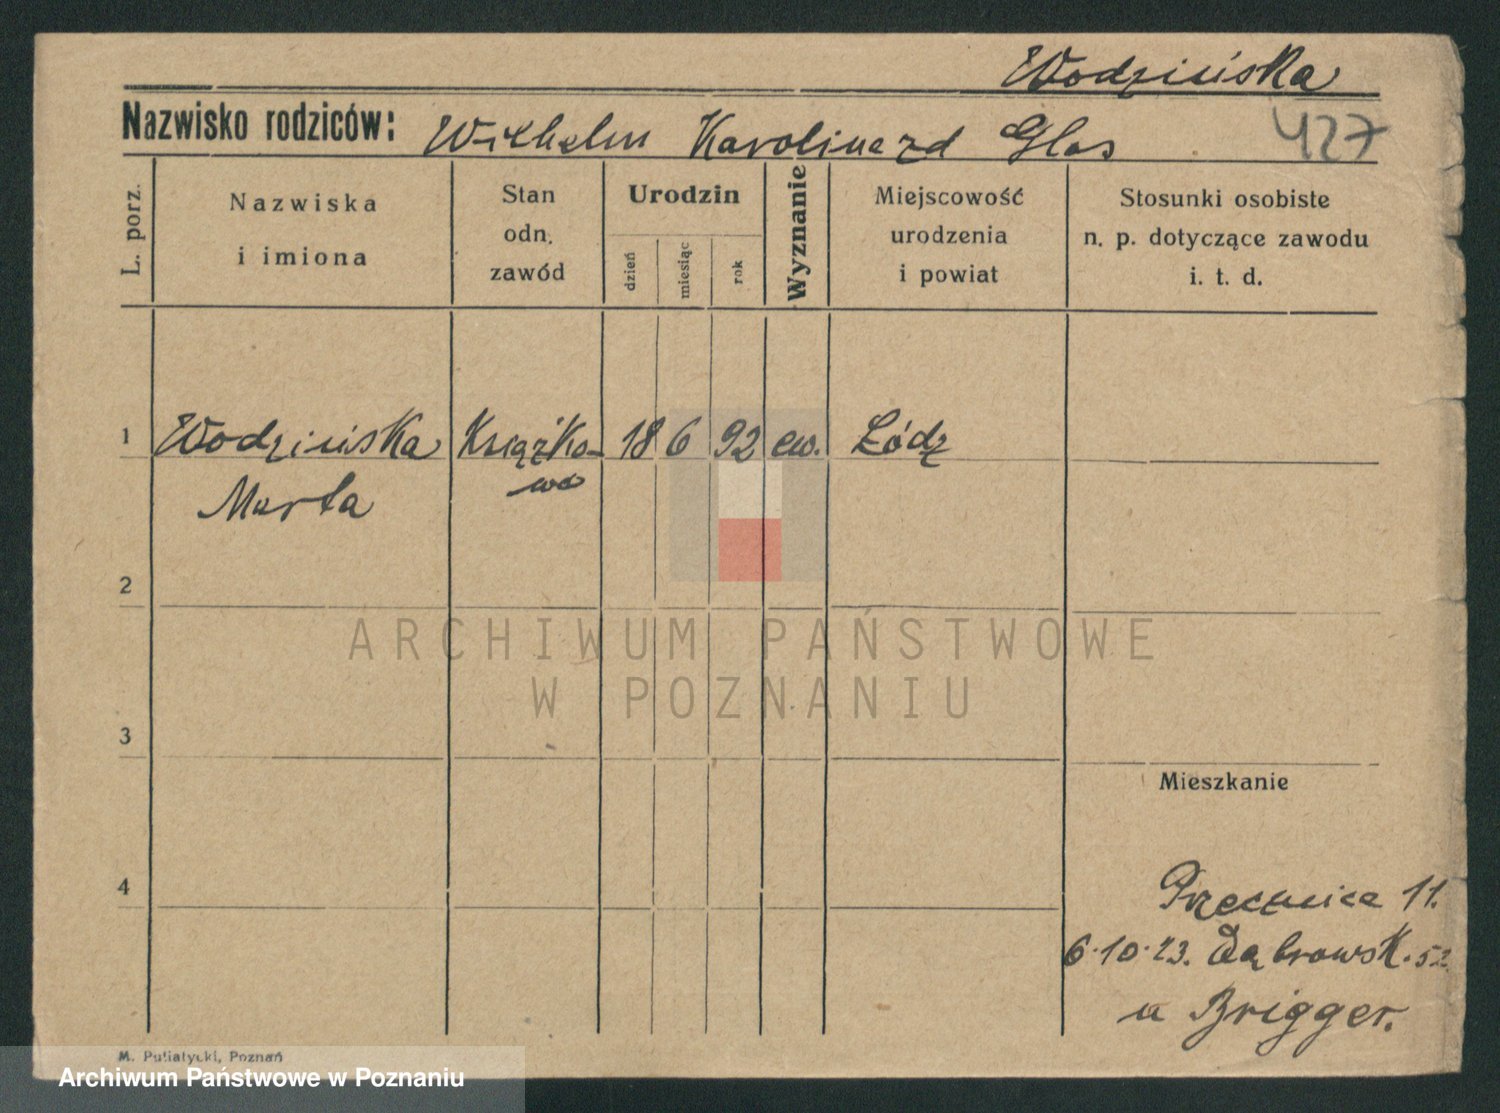 Wodzińska
Nazwisko rodziców: Wilhelm Karoline zd Glas
427
L. porz.
Nazwiska
i imiona
Stan
odn.
zawód
Urodzin
dzień
miesiąc
rok
Wyznanie
Miejscowość
urodzenia
i powiat
Stosunki osobiste
n. p. dotyczące zawodu
i. t. d.
1 Wodzińska Książko- 18 6 92 ew. Łódź
Marta wa
2
ARCHIWUM PAŃSTWOWE
W POZNANIU
3
Mieszkanie
4
Przecznica 11.
6.10.23. Dąbrowsk. 52
u Brigger.
M. Putiatycki, Poznań
Archiwum Państwowe w Poznaniu